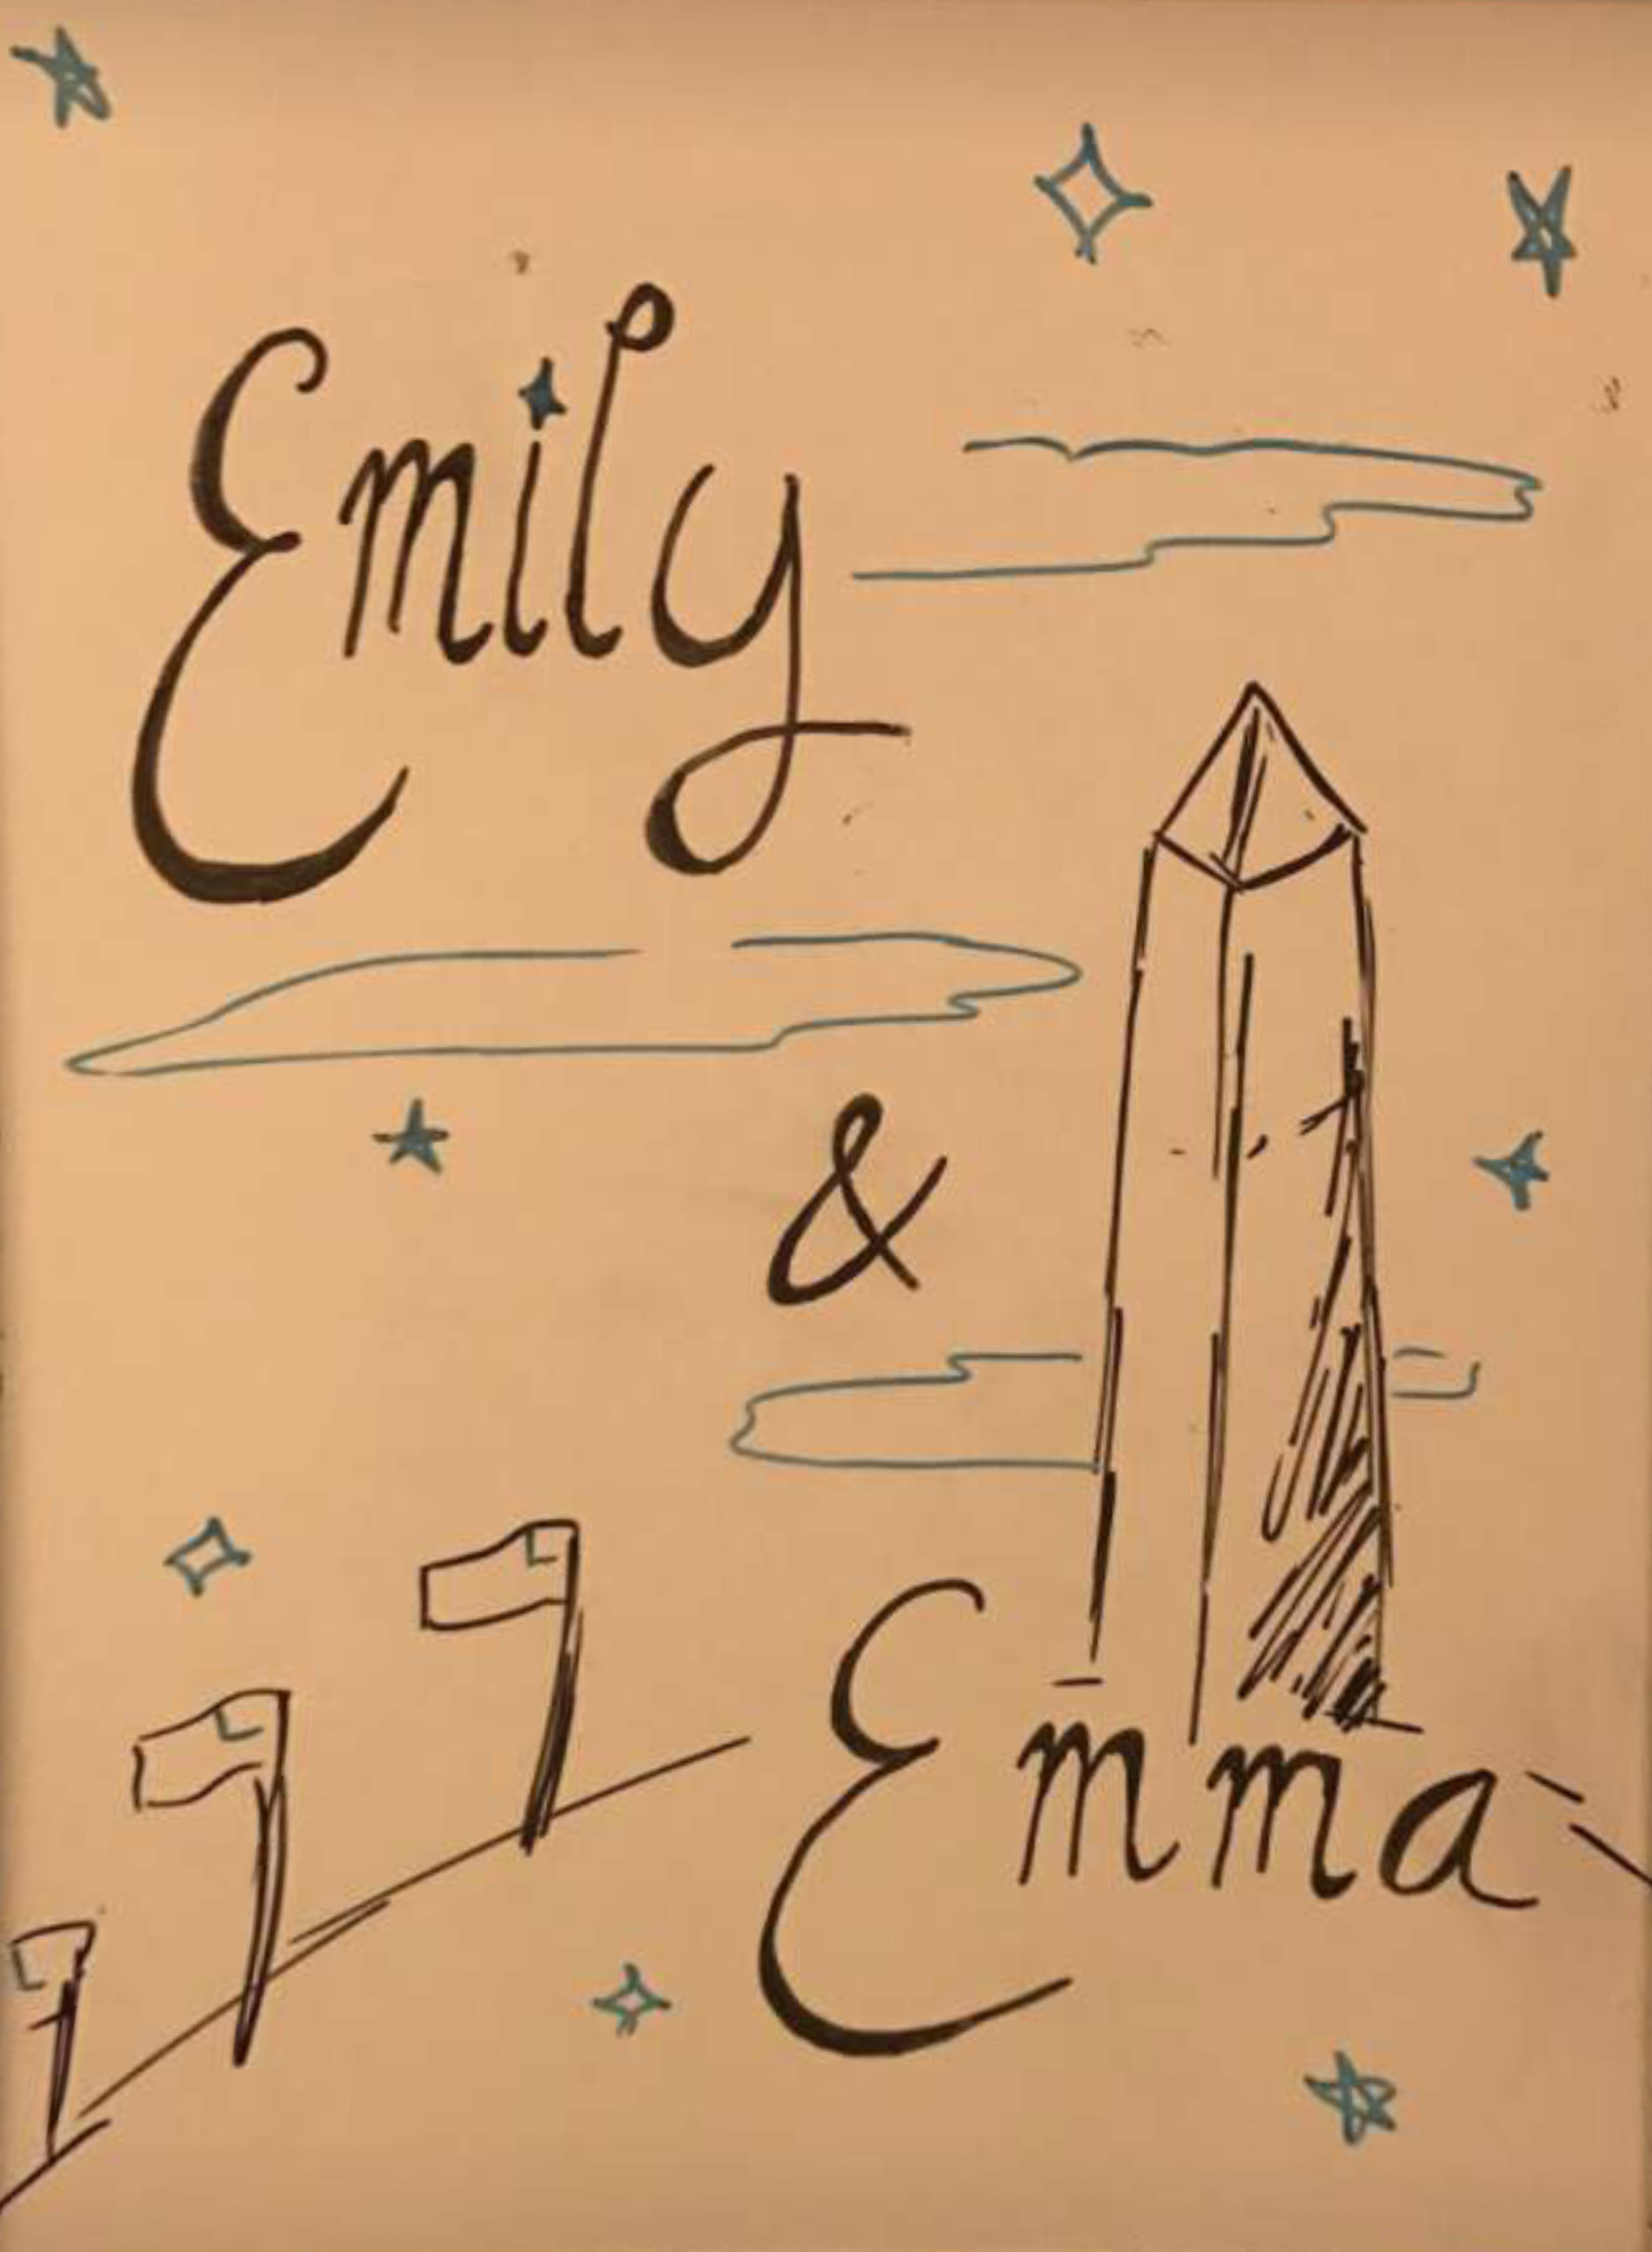 Emily
&
Emma